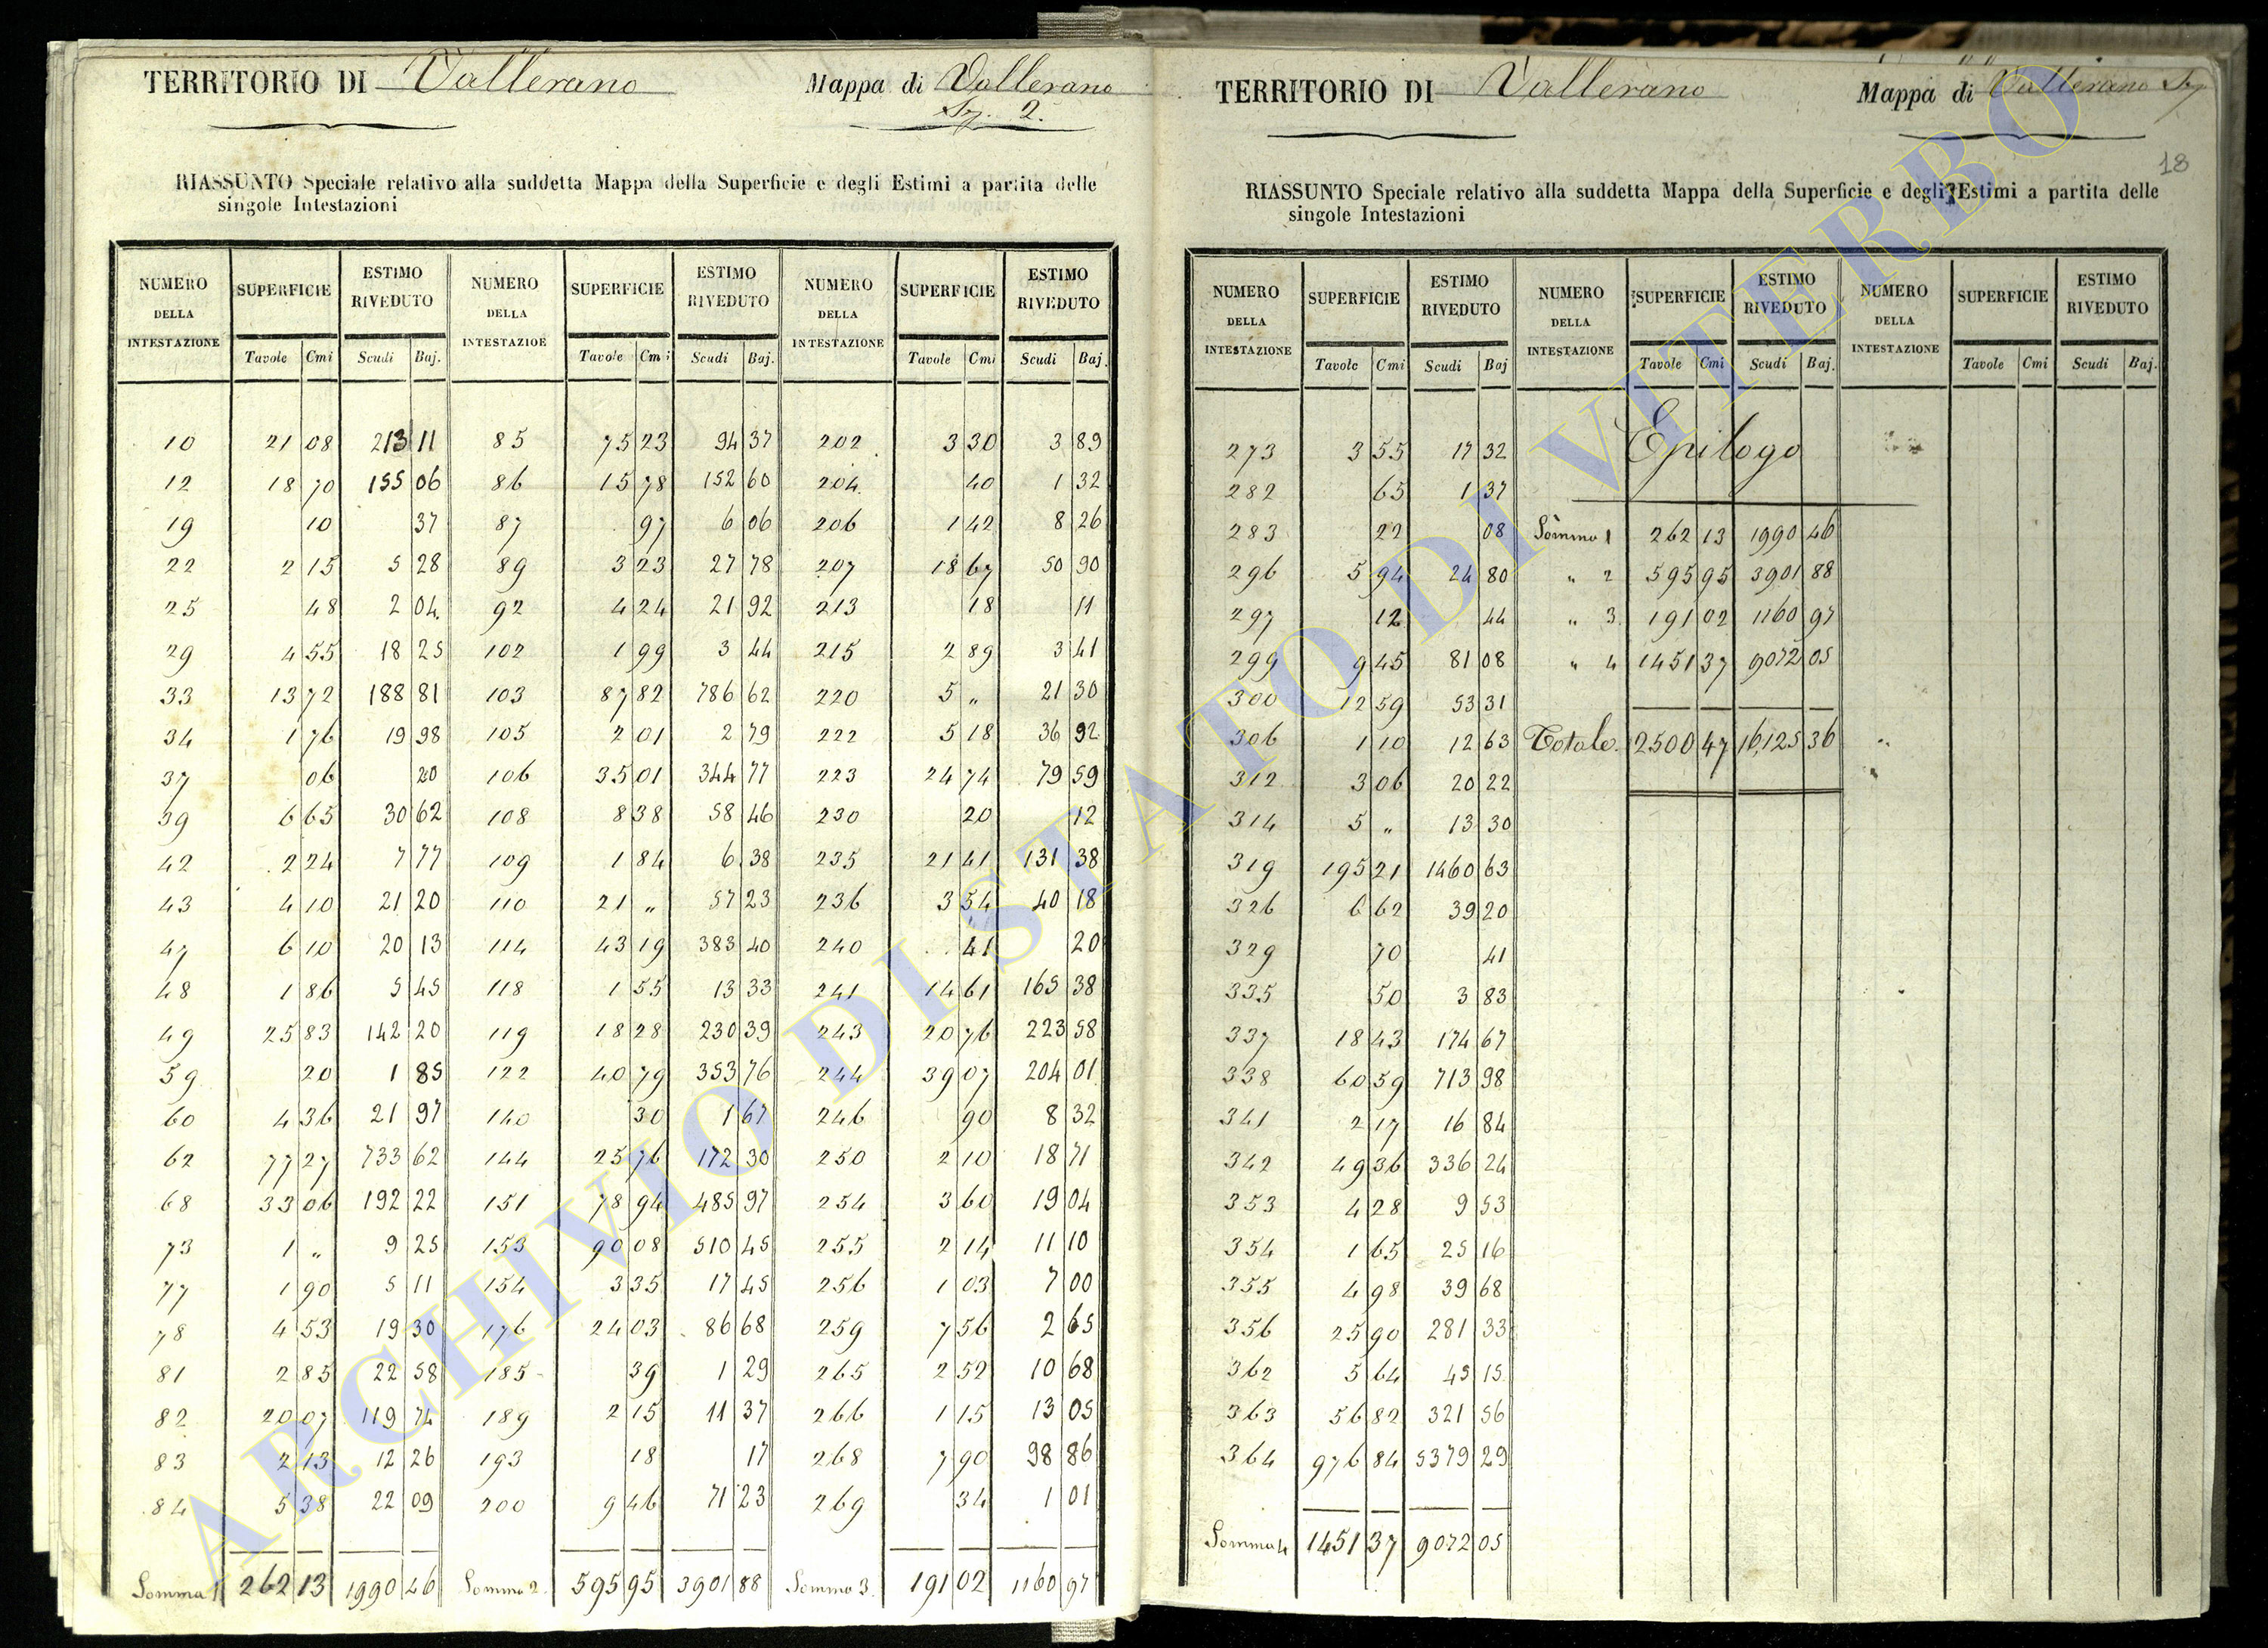 TERRITORIO DI Vallerano Mappa di Vallerano
Sez. 2.
RIASSUNTO Speciale relativo alla suddetta Mappa della Superficie e degli Estimi a partita delle
singole Intestazioni
NUMERO DELLA INTESTAZIONE SUPERFICIE ESTIMO RIVEDUTO NUMERO DELLA INTESTAZIOE SUPERFICIE ESTIMO RIVEDUTO NUMERO DELLA INTESTAZIONE SUPERFICIE ESTIMO RIVEDUTO
Tavole Cmi Scudi Baj. Tavole Cmi Scudi Baj. Tavole Cmi Scudi Baj.
10 21 08 213 11 85 75 23 94 37 202 3 30 3 89
12 18 70 155 06 86 15 78 152 60 204 40 1 32
19 10 37 87 97 6 06 206 1 42 8 26
22 2 15 5 28 89 3 23 27 78 207 18 67 50 90
25 48 2 04 92 4 24 21 92 213 18 11
29 4 55 18 25 102 1 99 3 44 215 2 89 3 41
33 13 72 188 81 103 87 82 786 62 220 5 „ 21 30
34 1 76 19 98 105 2 01 2 79 222 5 18 36 92
37 06 20 106 35 01 344 77 223 24 74 79 59
39 6 65 30 62 108 8 38 58 46 230 20 12
42 2 24 7 77 109 1 84 6 38 235 21 41 131 38
43 4 10 21 20 110 21 „ 57 23 236 3 54 40 18
47 6 10 20 13 114 43 19 383 40 240 41 20
48 1 86 5 45 118 1 55 13 33 241 14 61 165 38
49 25 83 142 20 119 18 28 230 39 243 20 76 223 58
59 20 1 85 122 40 79 353 76 244 39 07 204 01
60 4 36 21 97 140 30 1 67 246 90 8 32
62 77 27 733 62 144 25 76 172 30 250 2 10 18 71
68 33 06 192 22 151 78 94 485 97 254 3 60 19 04
73 1 „ 9 25 153 90 08 510 45 255 2 14 11 10
77 1 90 5 11 154 3 35 17 45 256 1 03 7 00
78 4 53 19 30 176 24 03 86 68 259 7 56 2 65
81 2 85 22 58 185 39 1 29 265 2 52 10 68
82 20 07 119 74 189 2 15 11 37 266 1 15 13 05
83 2 13 12 26 193 18 17 268 7 90 98 86
84 5 38 22 09 200 9 46 71 23 269 34 1 01
Somma 1 262 13 1990 46 Somma 2 595 95 3901 88 Somma 3. 191 02 1160 97
TERRITORIO DI Vallerano Mappa di Vallerano Sez
18
RIASSUNTO Speciale relativo alla suddetta Mappa della Superficie e degli Estimi a partita delle
singole Intestazioni
NUMERO DELLA INTESTAZIONE SUPERFICIE ESTIMO RIVEDUTO NUMERO DELLA INTESTAZIONE SUPERFICIE ESTIMO RIVEDUTO NUMERO DELLA INTESTAZIONE SUPERFICIE ESTIMO RIVEDUTO
Tavole Cmi Scudi Baj Tavole Cmi Scudi Baj. Tavole Cmi Scudi Baj.
273 3 55 17 32 Epilogo
282 65 1 37
283 22 08 Somma 1 262 13 1990 46
296 5 94 24 80 „ 2 595 95 3901 88
297 12 44 „ 3 191 02 1160 97
299 9 45 81 08 „ 4 1451 37 9072 05
300 12 59 53 31
306 1 10 12 63 Totale 2500 47 16,125 36
312 3 06 20 22
314 5 „ 13 30
319 195 21 1460 63
326 6 62 39 20
329 70 41
335 50 3 83
337 18 43 174 67
338 60 59 713 98
341 2 17 16 84
342 49 36 336 24
353 4 28 9 53
354 1 65 25 16
355 4 98 39 68
356 25 90 281 33
362 5 64 45 15
363 56 82 321 56
364 976 84 5379 29
Somma 4 1451 37 9072 05
ARCHIVIO DI STATO DI VITERBO